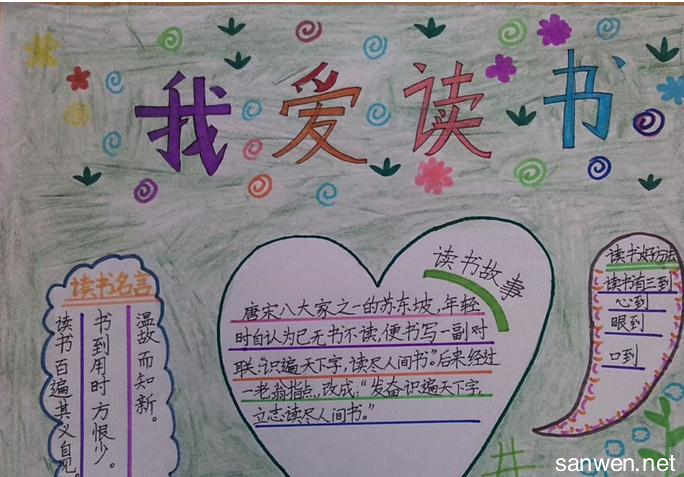 我爱读书
读书名言
温故而知新。
书到用时方恨少。
读书百遍其义自见。
读书故事
唐宋八大家之一的苏东坡,年轻
时自认为已无书不读,便书写一副对
联“识遍天下字,读尽人间书”。后来经过
一老翁指点,改成:“发奋识遍天下字,
立志读尽人间书。”
读书好方法
读书有三到
心到
眼到
口到
sanwen.net